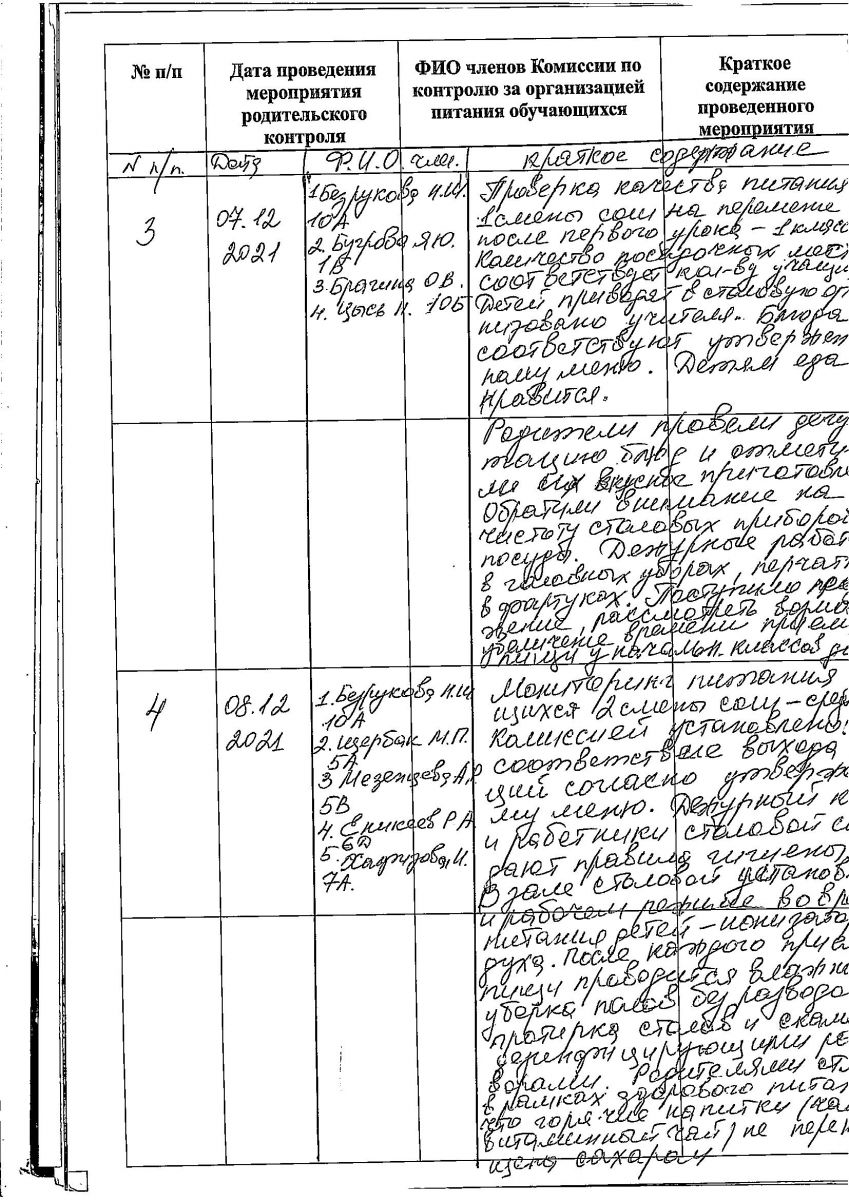 № п/п
Дата проведения
мероприятия
родительского
контроля
ФИО членов Комиссии по
контролю за организацией
питания обучающихся
Краткое
содержание
проведенного
мероприятия
N п/п. Дата Ф.И.О. член. краткое содержание
3
07.12
2021
1 Безрукова Н.Ш.
10А
2. Бугрова Я.Ю.
1В
3. Брагина О.В.
4. Цысь Н. 10Б
Проверка качества питания
1 смены сош на перемене
после первого урока – 1 класс
Количество посадочных мест
соответствует кол-ву учащи
Детей приводят в столовую ор
низовано учителя. Блюда
соответствуют утвержден
ному меню. Детям еда
нравится.
Родители провели дегу
тацию блюд и отмети
ли их вкусное приготовле
Обратили внимание на
чистоту столовых приборов
посуды. Дежурные работ
в головных уборах, перчат
в фартуках. Поступило пред
жение, рассмотреть
увеличение времени прием
пищи у начальн. классов до
4
08.12
2021
1. Безрукова Н.Ш
10А
2. Щербак М.П.
5А
3 Мезенцева А.Р
5В
4. Еникеев Р А
6Д
5. Хафизова И.
7А.
Мониторинг питания
щихся 2 смены сош – сред
Комиссией установлено:
соответствие выхода
ций согласно утвержд
му меню. Дежурный к
и работники столовой со
дают правила гигиены
В зале столовой установл
и рабочем режиме во вре
питания детей – ионизатор
духа. После каждого прием
пищи проводится влажн
уборка полов без разводо
протирка столов и скам
дезинфицирующими ра
ворами. Родителями
в рамках здорового питан
что горячие напитки (чай
витаминный чай) не пере
щены сахаром